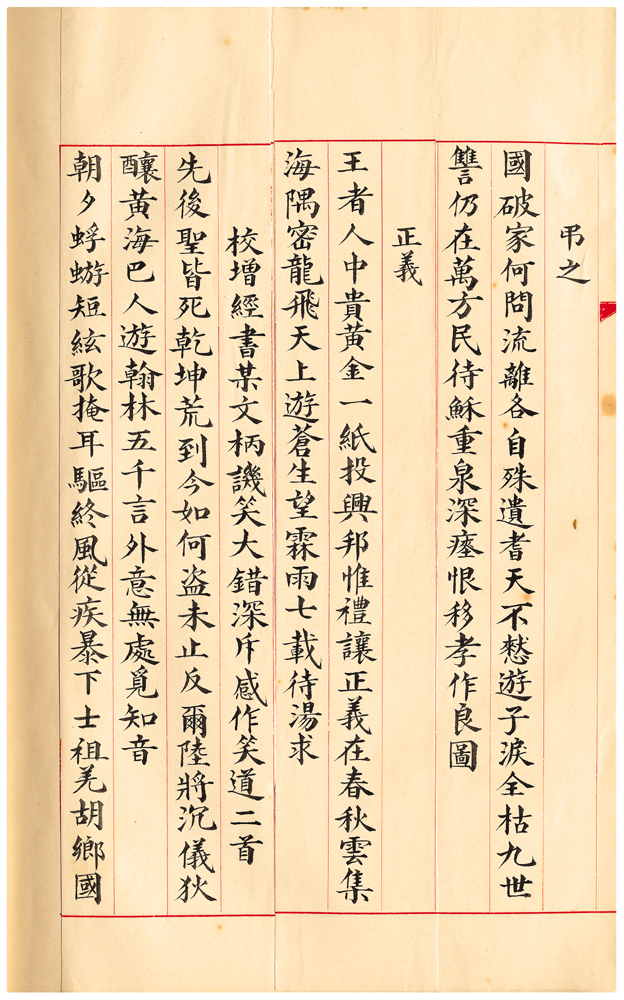 弔之
國破家何問流離各自殊遺耆天不憖遊子淚全枯九世
讐仍在萬方民待穌重泉深瘞恨移孝作良圖
正義
王者人中貴黃金一紙投興邦惟禮讓正義在春秋雲集
海隅密龍飛天上遊蒼生望霖雨七載待湯求
校增經書某文柄譏笑大錯深斥感作笑道二首
先後聖皆死乾坤荒到今如何盜未止反爾陸將沉儀狄
釀黃海巴人遊翰林五千言外意無處覓知音
朝夕蜉蝣短絃歌掩耳驅終風從疾暴下士祖羌胡鄉國